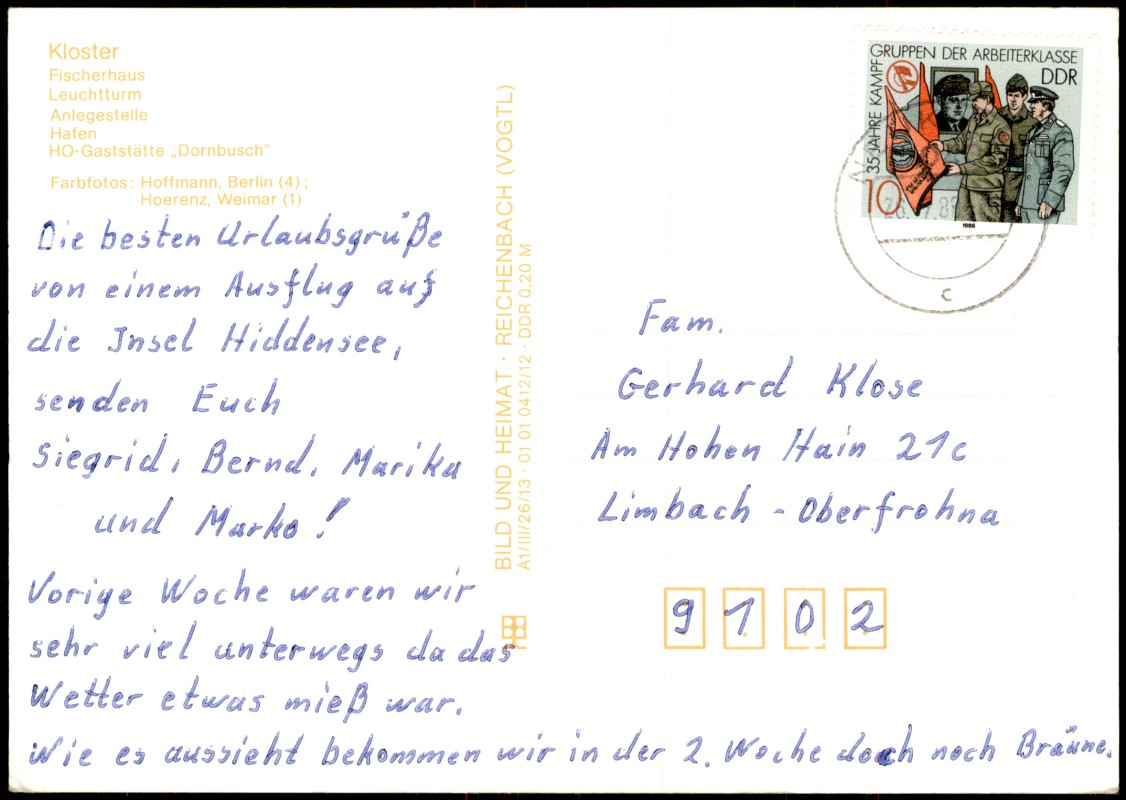 Kloster
Fischerhaus
Leuchtturm
Anlegestelle
Hafen
HO-Gaststätte „Dornbusch“
Farbfotos: Hoffmann, Berlin (4);
Hoerenz, Weimar (1)
Die besten Urlaubsgrüße
von einem Ausflug auf
die Insel Hiddensee,
senden Euch
Siegrid, Bernd, Marika
und Marko!
Vorige Woche waren wir
sehr viel unterwegs da das
Wetter etwas mieß war.
Wie es aussieht bekommen wir in der 2. Woche doch noch Bräune.
BILD UND HEIMAT · REICHENBACH (VOGTL)
A1/III/26/13 · 01 01 0412/12 · DDR 0,20 M
35 JAHRE KAMPFGRUPPEN DER ARBEITERKLASSE
DDR
10
1988
c
Fam.
Gerhard Klose
Am Hohen Hain 21c
Limbach - Oberfrohna
9102